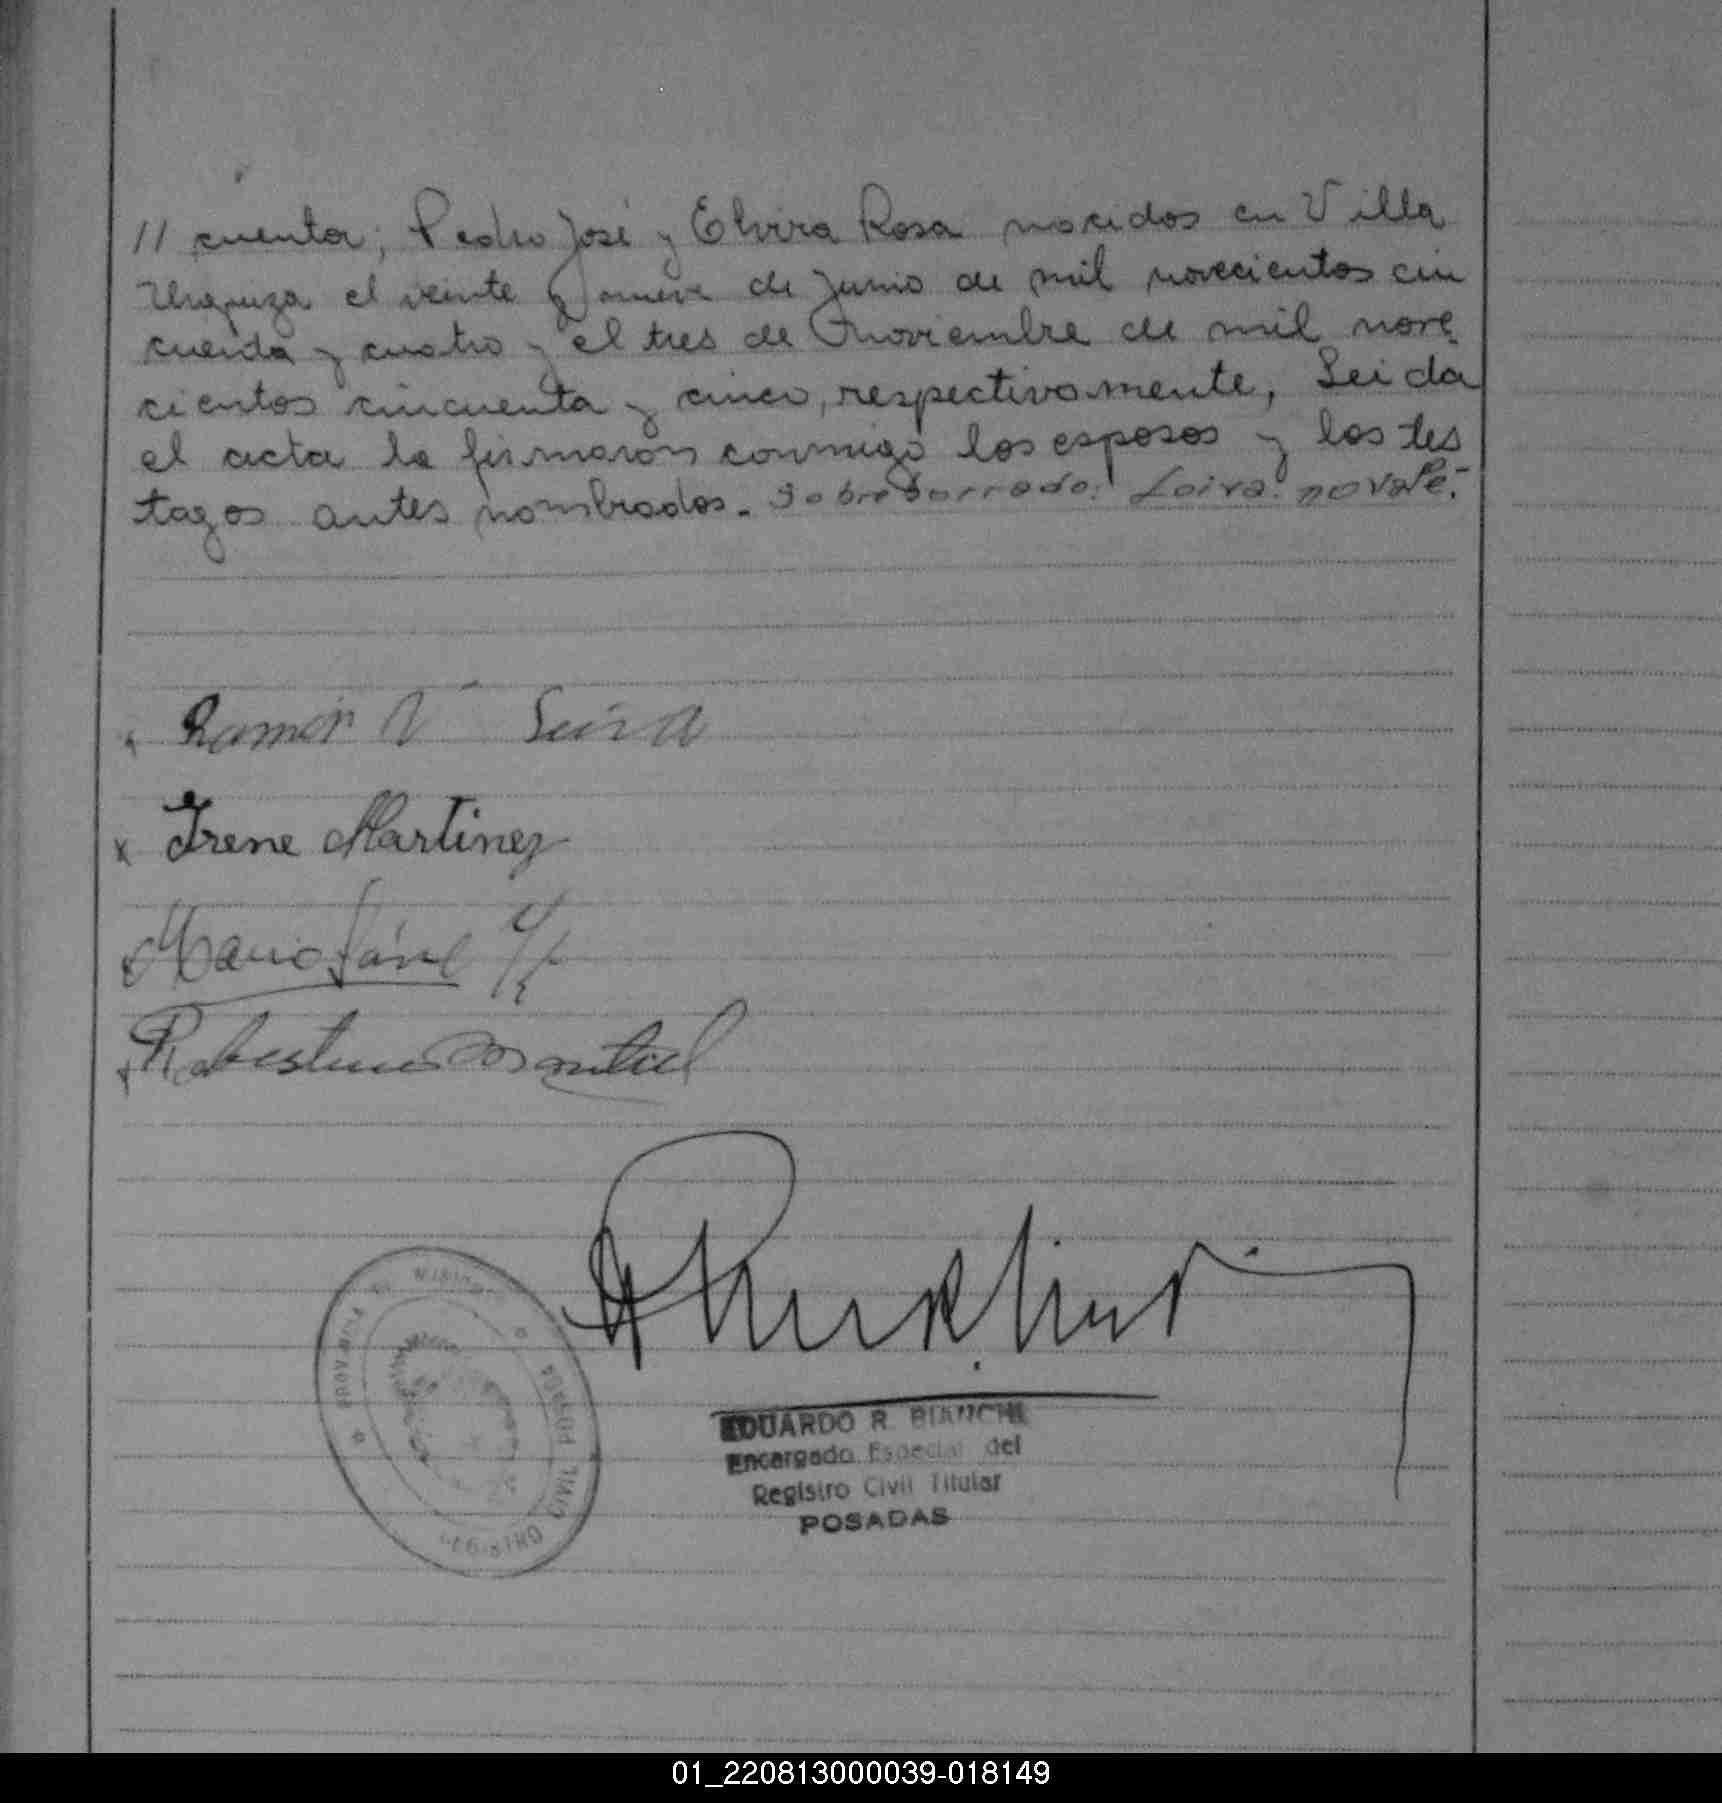 // cuenta; Pedro José y Elvira Rosa nacidos en Villa
Urquiza el veinte y nueve de Junio de mil novecientos cin
cuenta y cuatro y el tres de Noviembre de mil nove
cientos cincuenta y cinco, respectivamente, Leida
el acta la firmaron conmigo los esposos y los tes
tagos antes nombrados. Sobreborrado: Loiva. no vale.-
Ramón V
x Irene Martinez
Mario
Montiel
PROVINCIA DE MISIONES
REGISTRO CIVIL POSADAS
EDUARDO R. BIANCHI
Encargado Especial del
Registro Civil Titular
POSADAS
01_220813000039-018149